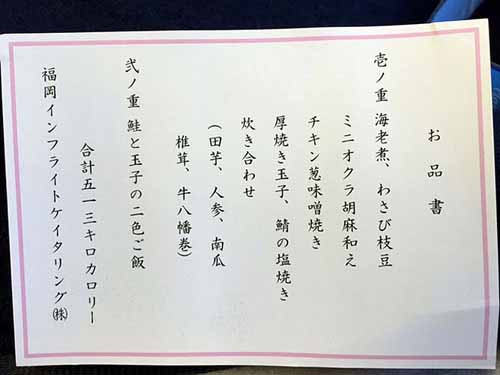 お品書
壱ノ重 海老煮、わさび枝豆
ミニオクラ胡麻和え
チキン葱味噌焼き
厚焼き玉子、鯖の塩焼き
炊き合わせ
(田芋、人参、南瓜
椎茸、牛八幡巻)
弐ノ重 鮭と玉子の二色ご飯
合計五一三キロカロリー
福岡インフライトケイタリング㈱